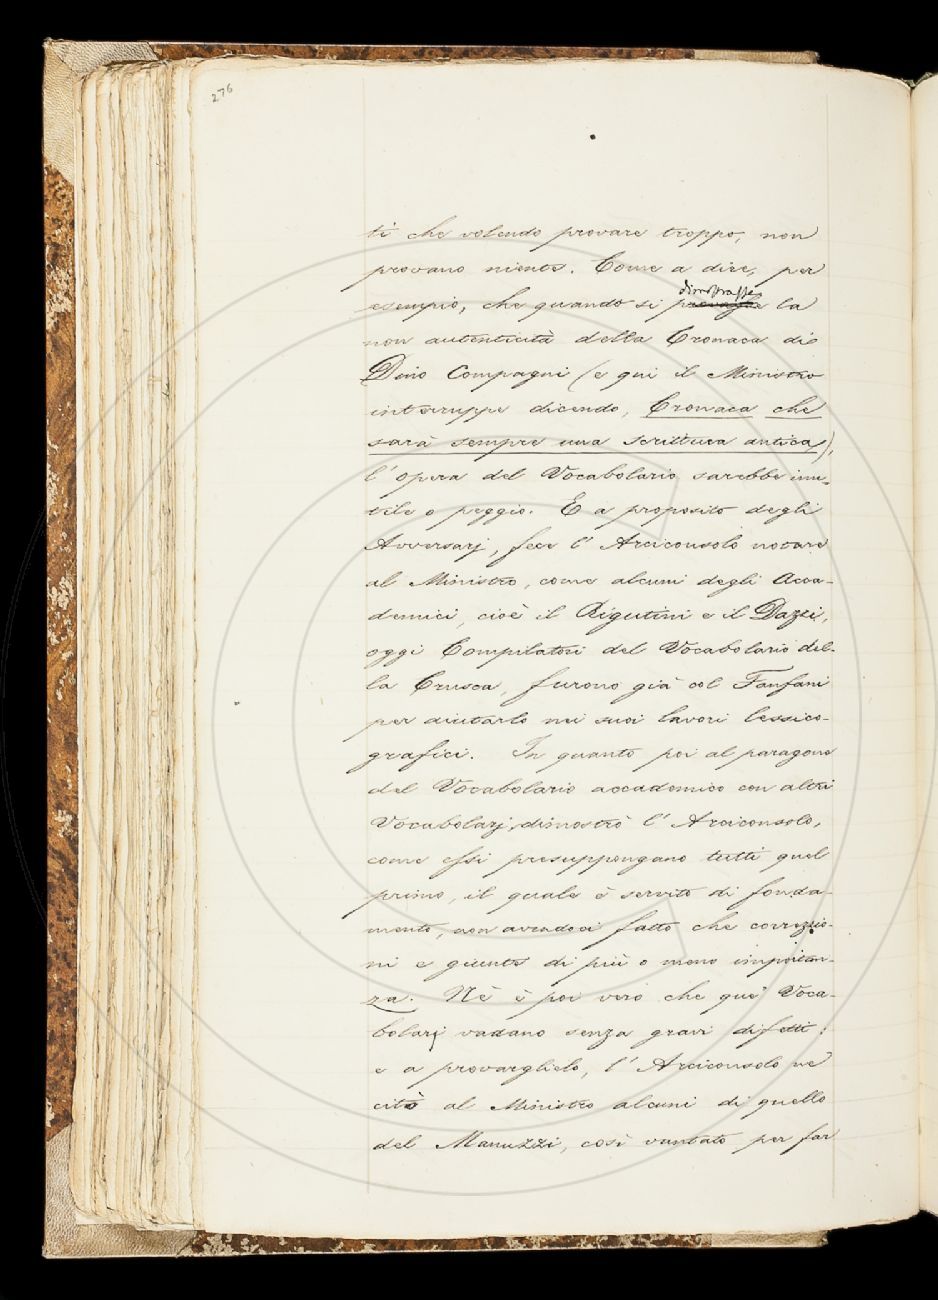 276
ti che volendo provare troppo, non
provano niente. Come a dire, per
dimostrasse
esempio, che quando si provasse la
non autenticità della Cronaca di
Dino Compagni (e qui il Ministro
interruppe dicendo, Cronaca che
sarà sempre una scrittura antica),
l'opera del Vocabolario sarebbe inu-
tile o peggio. E a proposito degli
Avversarj, fece l'Arciconsolo notare
al Ministro, come alcuni degli Acca-
demici, cioè il Rigutini e il Dazzi,
oggi Compilatori del Vocabolario del-
la Crusca, furono già col Fanfani
per aiutarlo nei suoi lavori lessico-
grafici. In quanto poi al paragone
del Vocabolario accademico con altri
Vocabolarj, dimostrò l'Arciconsolo,
come essi presuppongano tutti quel
primo, il quale è servito di fonda-
mento, non avendoci fatto che correzio-
ni e giunte di più o meno importan-
za. Nè è poi vero che que' Voca-
bolarj vadano senza gravi difetti:
e a provarglielo, l'Arciconsolo ne
citò al Ministro alcuni di quello
del Manuzzi, così vantato per far